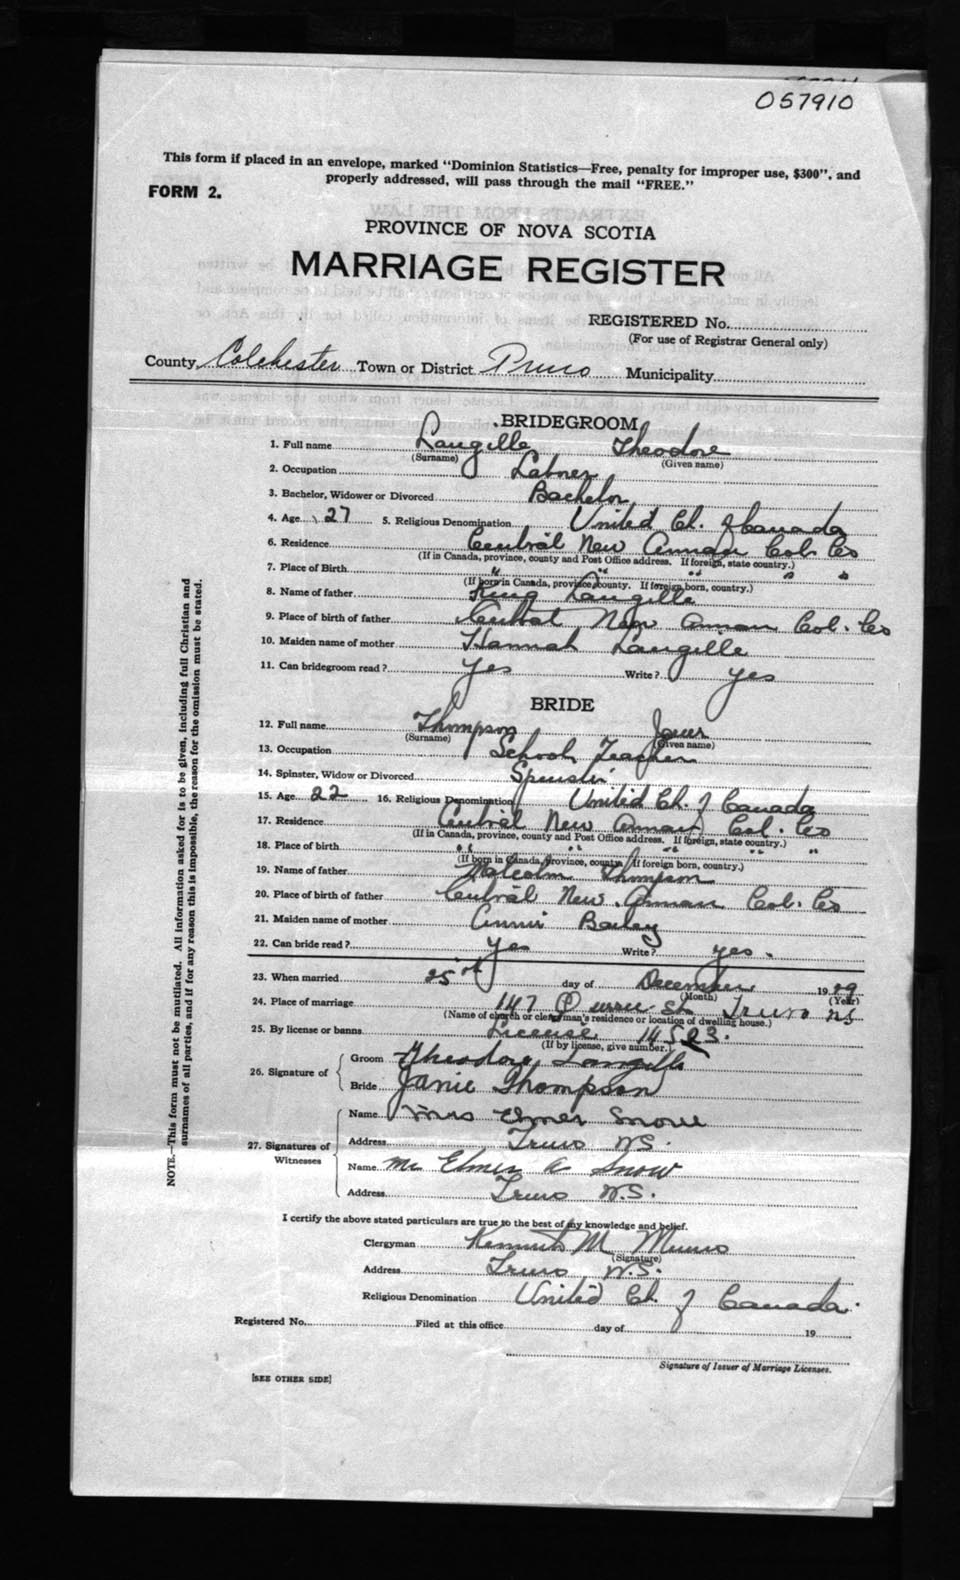 057910
This form if placed in an envelope, marked "Dominion Statistics—Free, penalty for improper use, $300", and
properly addressed, will pass through the mail "FREE."
FORM 2.
PROVINCE OF NOVA SCOTIA
MARRIAGE REGISTER
REGISTERED No.
(For use of Registrar General only)
County Colchester Town or District Truro Municipality
BRIDEGROOM
1. Full name Langille Theodore
(Surname) (Given name)
2. Occupation Laborer
3. Bachelor, Widower or Divorced Bachelor
4. Age 27 5. Religious Denomination United Ch. of Canada
6. Residence Central New Annan Col. Co
(If in Canada, province, county and Post Office address. If foreign, state country.)
7. Place of Birth " " " " "
(If born in Canada, province, county. If foreign born, country.)
8. Name of father King Langille
9. Place of birth of father Central New Annan Col. Co
10. Maiden name of mother Hannah Langille
11. Can bridegroom read? yes Write? yes
BRIDE
12. Full name Thompson
(Surname) (Given name)
13. Occupation School Teacher
14. Spinster, Widow or Divorced Spinster
15. Age 22 16. Religious Denomination United Ch. of Canada
17. Residence Central New Annan Col. Co
(If in Canada, province, county and Post Office address. If foreign, state country.)
18. Place of birth " " " " "
(If born in Canada, province, county. If foreign born, country.)
19. Name of father Malcolm Thompson
20. Place of birth of father Central New Annan Col. Co
21. Maiden name of mother Annie Bailey
22. Can bride read? yes Write? yes.
23. When married 25th day of December 1929
(Month) (Year)
24. Place of marriage 147 St. Truro NS
(Name of church or clergyman's residence or location of dwelling house.)
25. By license or banns License
(If by license, give number.)
26. Signature of Groom Theodore Langille
Bride Janie Thompson
27. Signatures of Witnesses
Name Mrs Elmer Snow
Address Truro N.S.
Name Mr Elmer A Snow
Address Truro N.S.
I certify the above stated particulars are true to the best of my knowledge and belief.
Clergyman Kenneth M Munro
(Signature)
Address Truro N.S.
Religious Denomination United Ch. of Canada.
Registered No. Filed at this office day of 19
Signature of Issuer of Marriage Licenses.
[SEE OTHER SIDE]
NOTE.—This form must not be mutilated. All information asked for is to be given, including full Christian and
surnames of all parties, and if for any reason this is impossible, the reason for the omission must be stated.